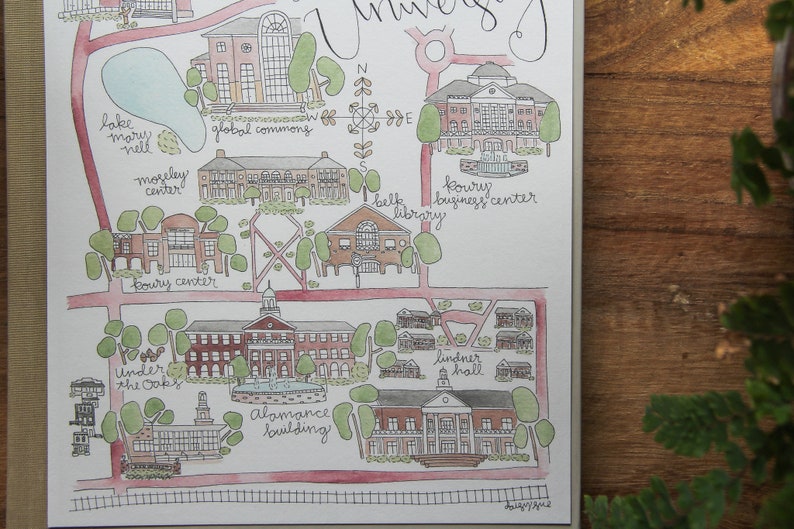 University
N
W E
S
global commons
lake
mary
nell
moseley
center
belk
library
koury
business center
koury center
under
the Oaks
lindner
hall
Alamance
building